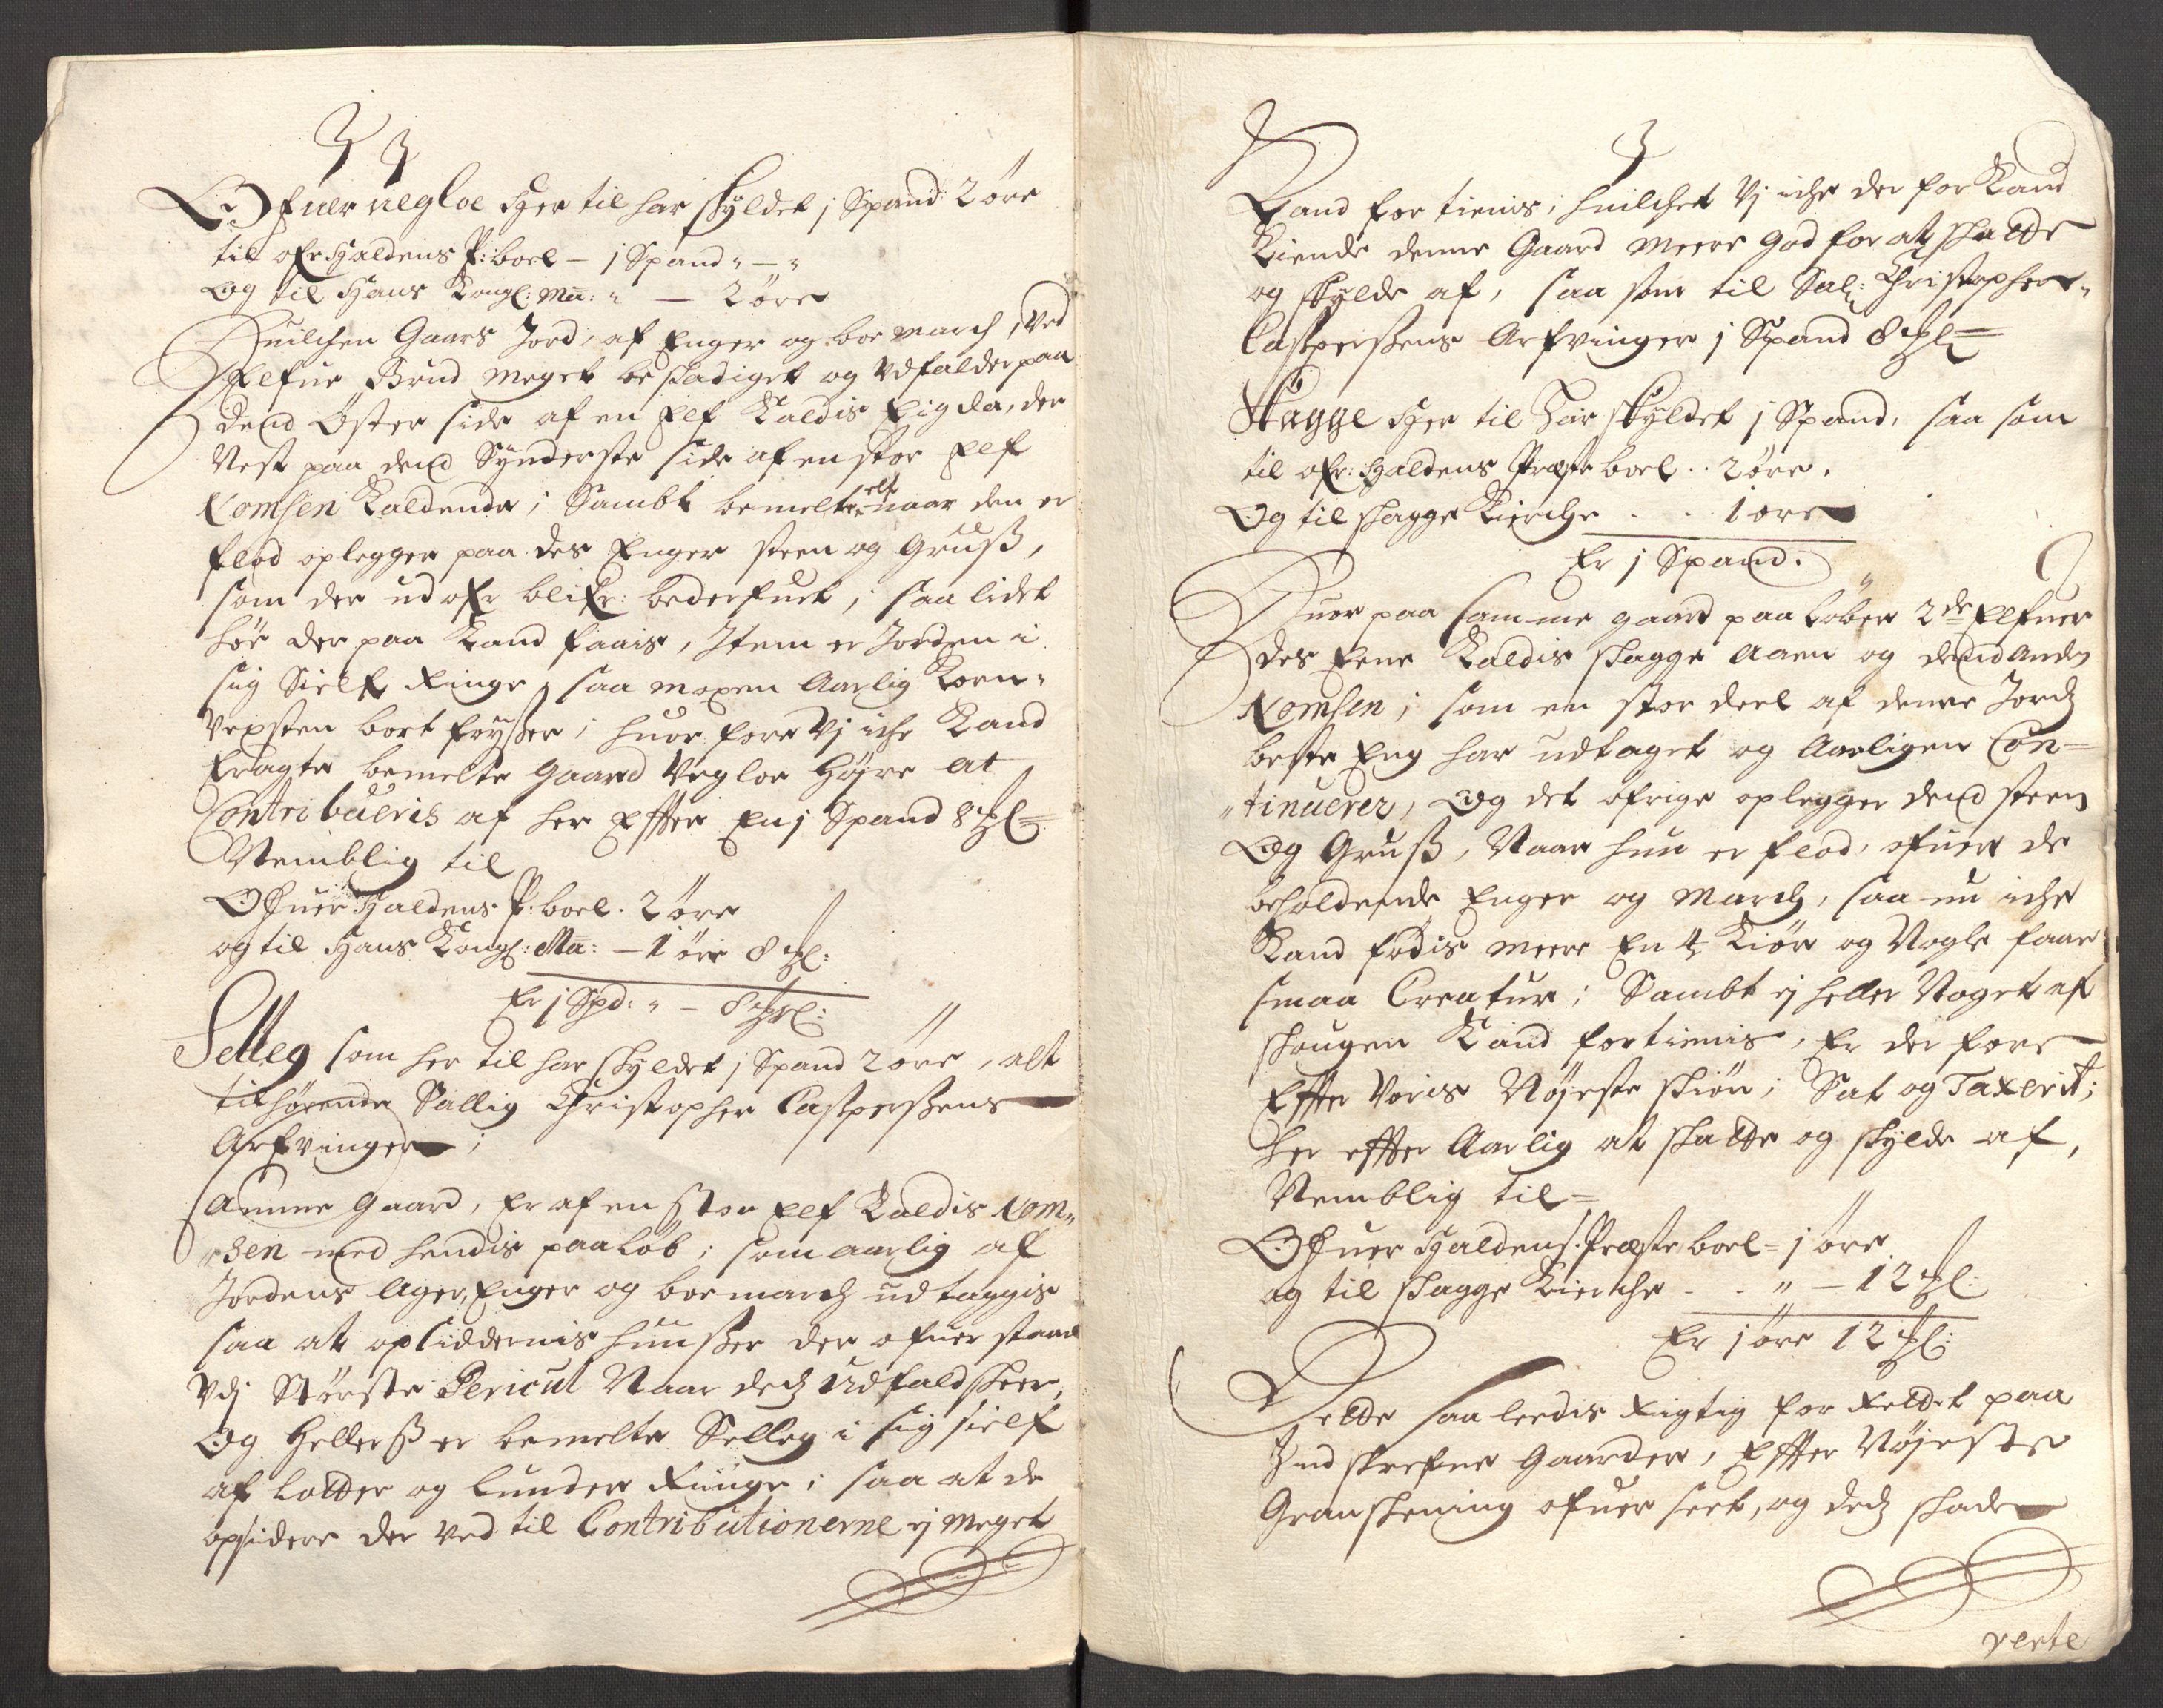 Ofuer Uegloe her til har skyldet j Spand 2 øre
til ofr: Haldens P: boel – j Spand „ – „
Og til Hans Kongl: Ma: „ – 2 øre
Huilchen Gaars Jord, af Enger og boe march, ved
Elfue Brud meget beskadiget og Udfalder paa
dend Øster side af en Elf Kaldis Eigda, der
Vest paa dend Synderste side af en stor Elf
Nomsen Kaldende; Sambt bemelte elf naar den er
flod oplegger paa des Enger steen og Gruss,
som der ud ofr blifr: bederfuet, saa lidet
høe der paa Kand faais, Item er Jorden i
sig Sielf Ringe, saa mesten Aarlig Korn„
Vexsten bort frysser; huor fore Vj iche Kand
Eragte bemelte gaard Vegloe høyre at
Contribueris af her Effter En j Spand 8 sl=
Nemblig til
Ofuer Haldens P: boel. 2 øre
og til Hans Kongl: Ma: – 1 øre 8 sl:
Er j Spd: „ – 8 sl:
Selleg som her til har skyldet j Spand 2 øre, alt
tilhørende Sallig Christopher Casperssens
Arfvinger;
Samme gaard, Er af en stor Elf Kaldis Nom„
„sen med hendis paaløb; som aarlig af
Jordens Ager, Enger og boe march ud taggis
saa at opsiddernis huusser der ofuer staar
Vdj Største Pericul Naar dech Udfald skeer,
Og hellerss er bemelte Selleg i sig sielf
af Lotter og Lunder Ringe; saa at de
opsidere der ved til Contributionerne ej meget
Kand for tienis; huilchet Vj iche der for Kand
Kiende denne Gaard meere god for at skatte
og skylde af, saa som til Sal: Christopher„
Casperssens Arfvinger j Spand 8 sl=
Skagge her til Har skyldet j Spand, saa som
til ofr: Haldens Præste boel .. 2 øre.
Og til skagge Kierche . . 1 øre
Er j Spand.
Huor paa samme gaard paa løber 2de Elfuer
des Eene Kaldis skagge Aaen og dend anden
Nomsen; som en stor deel af denne Jords
beste Eng har udtaget og Aarligen Con=
„tinuerer, Og det øfrige oplegger dend steen
Og Gruss, Naar hun er flod, ofuer de
beholdende Enger og march, saa nu iche
Kand fødis meere En 4 Kiør og Nogle faae
smaa Creatur; Sambt ej heller Noget af
skougen Kand fortienis, Er der fore
Effter Voris Nøjeste skiøn; Sat og Taxerit;
her effter Aarlig at skatte og skylde af,
Nemblig til=
Ofuer Haldens. Præste boel = j øre
og til skagge Kierche . . „ – 12 sl:
Er j øre 12 sl:
Dette saa leedis Rigtig for Rettet paa
Ind skrefne Gaarder, Effter Nøjeste
Granskning ofuer seet, og dech skade
verte